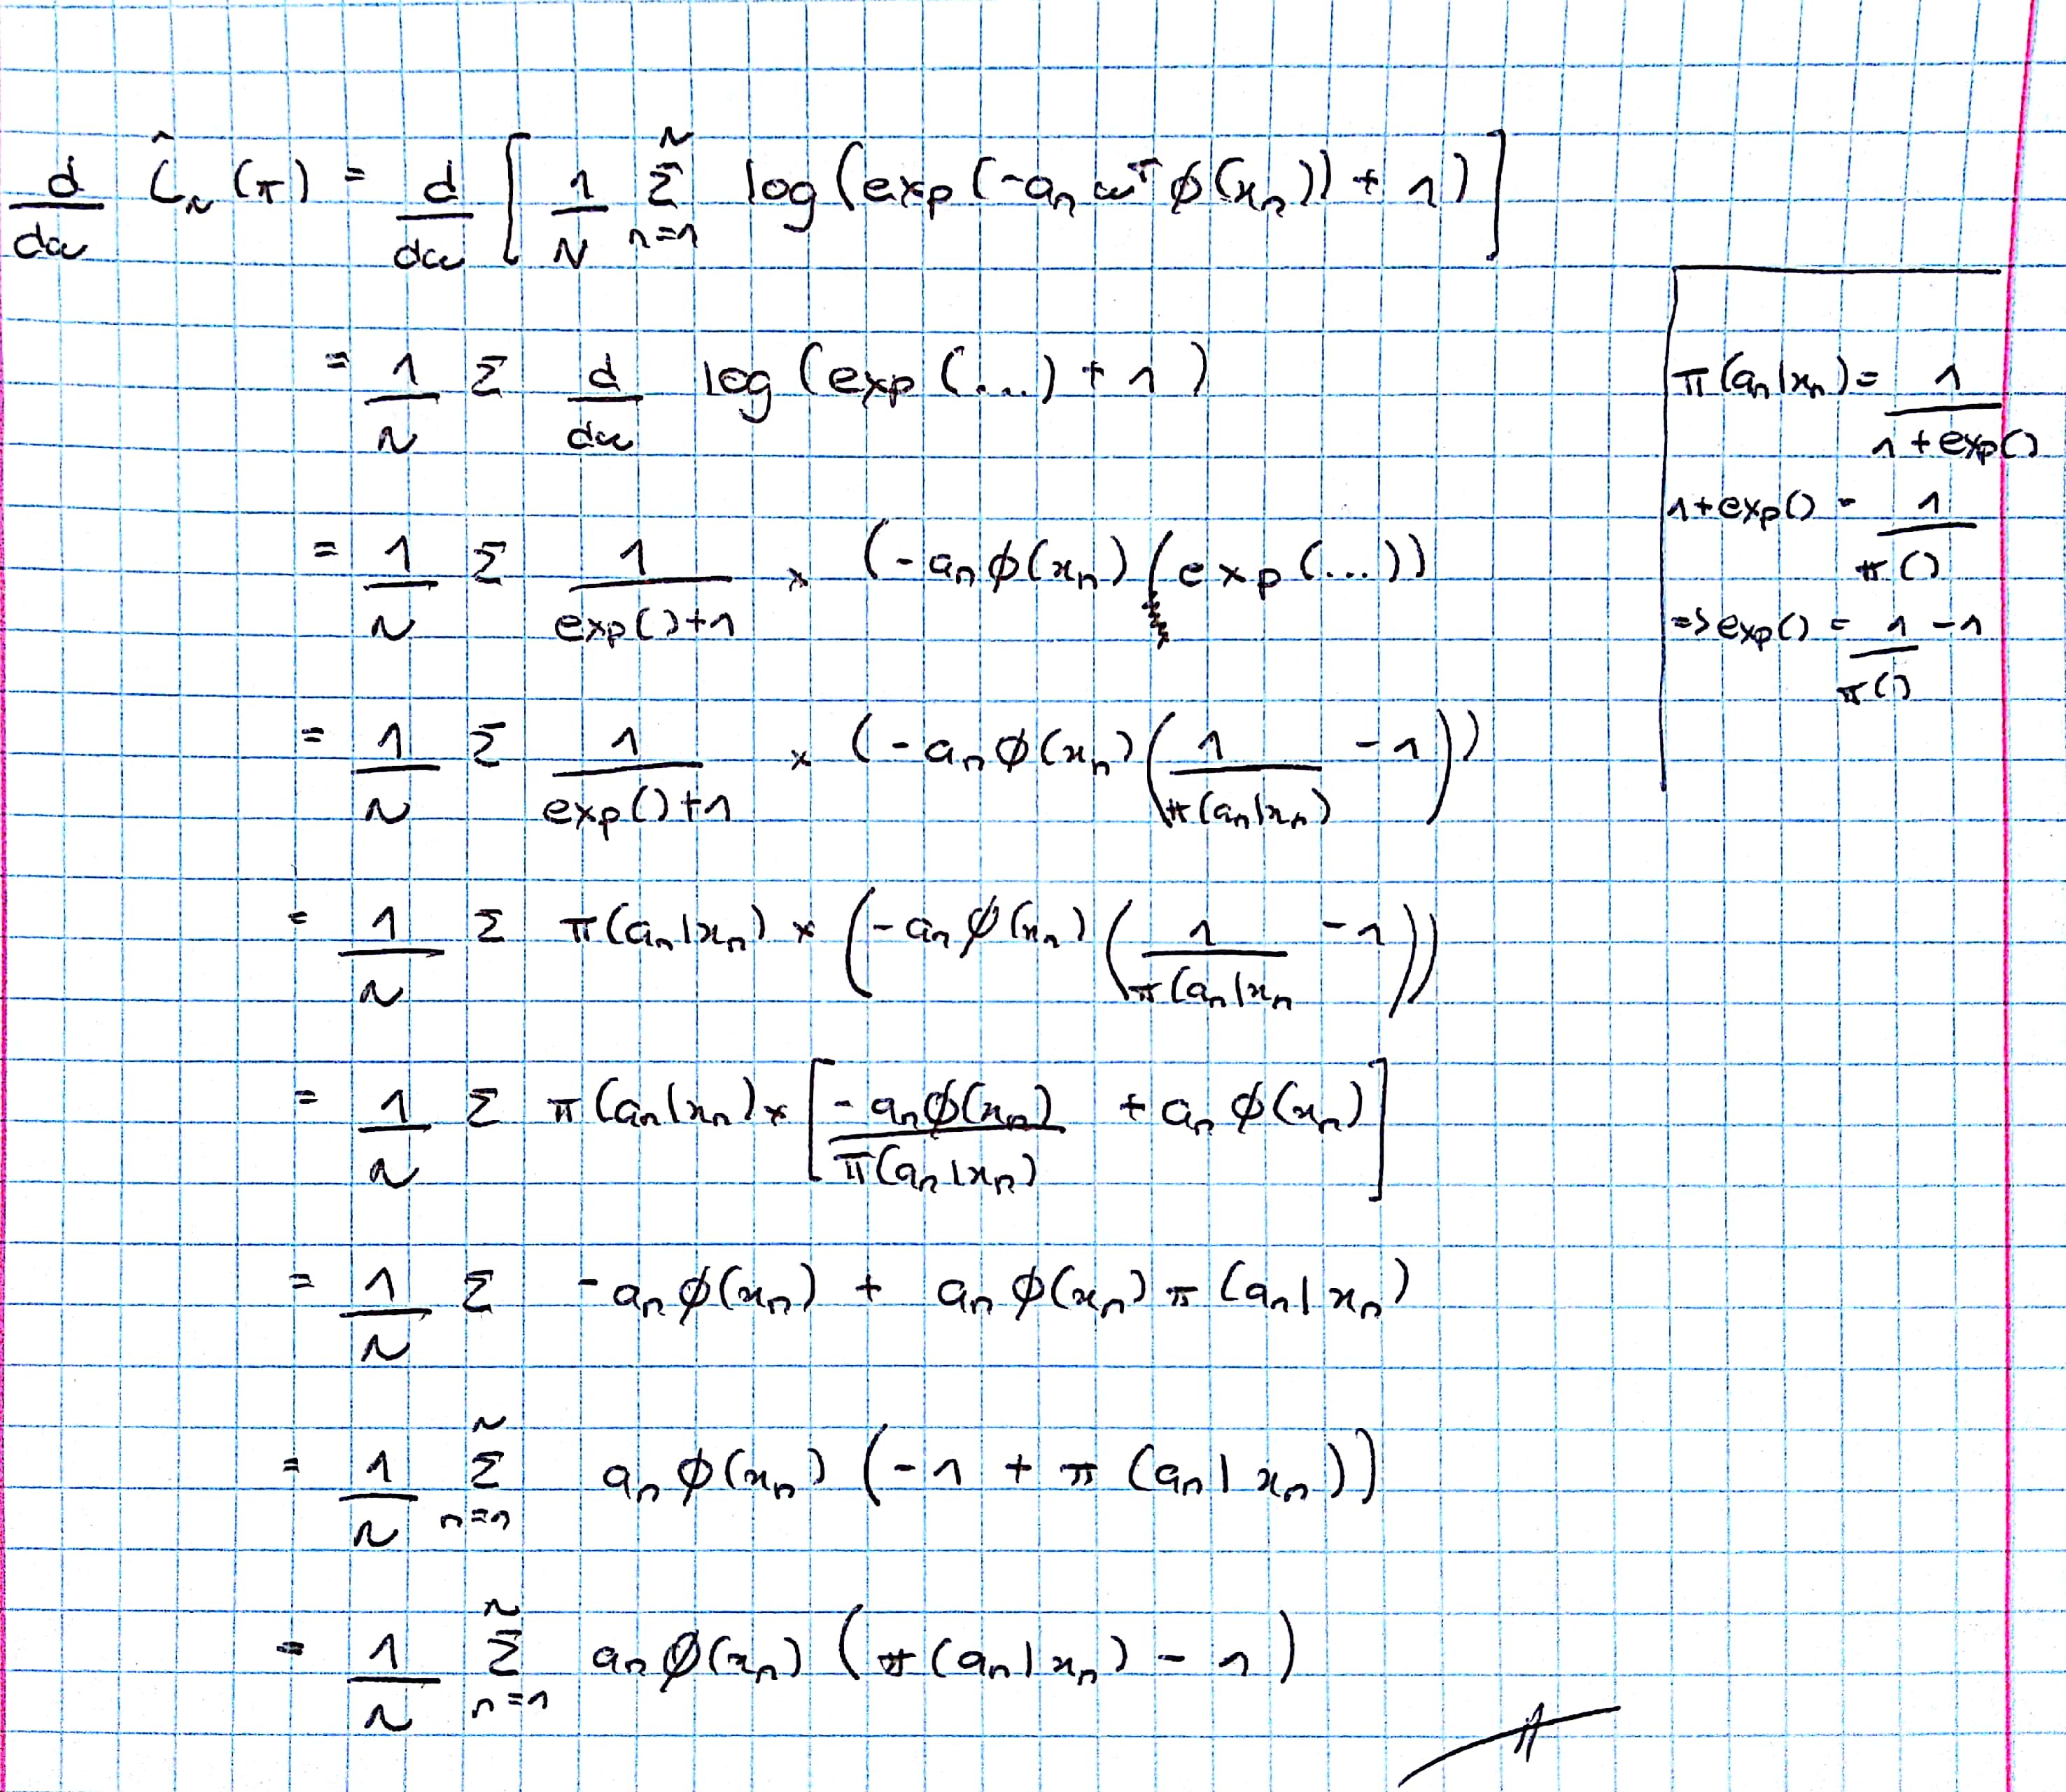 d/dω Ĉ_N(π) = d/dω [ 1/N Σ_{n=1}^{N} log(exp(-a_n ω^T ϕ(x_n)) + 1) ]
= 1/N Σ d/dω log(exp(...) + 1)
= 1/N Σ 1/(exp()+1) × (-a_n ϕ(x_n)(exp(...))
= 1/N Σ 1/(exp()+1) × (-a_n ϕ(x_n)(1/π(a_n|x_n) - 1))
= 1/N Σ π(a_n|x_n) × (-a_n ϕ(x_n)(1/π(a_n|x_n - 1))
= 1/N Σ π(a_n|x_n) × [ -a_n ϕ(x_n)/π(a_n|x_n) + a_n ϕ(x_n) ]
= 1/N Σ -a_n ϕ(x_n) + a_n ϕ(x_n) π(a_n|x_n)
= 1/N Σ_{n=1}^{N} a_n ϕ(x_n) (-1 + π(a_n|x_n))
= 1/N Σ_{n=1}^{N} a_n ϕ(x_n) (π(a_n|x_n) - 1)
π(a_n|x_n) = 1/(1+exp())
1+exp() = 1/π()
=> exp() = 1/π() - 1